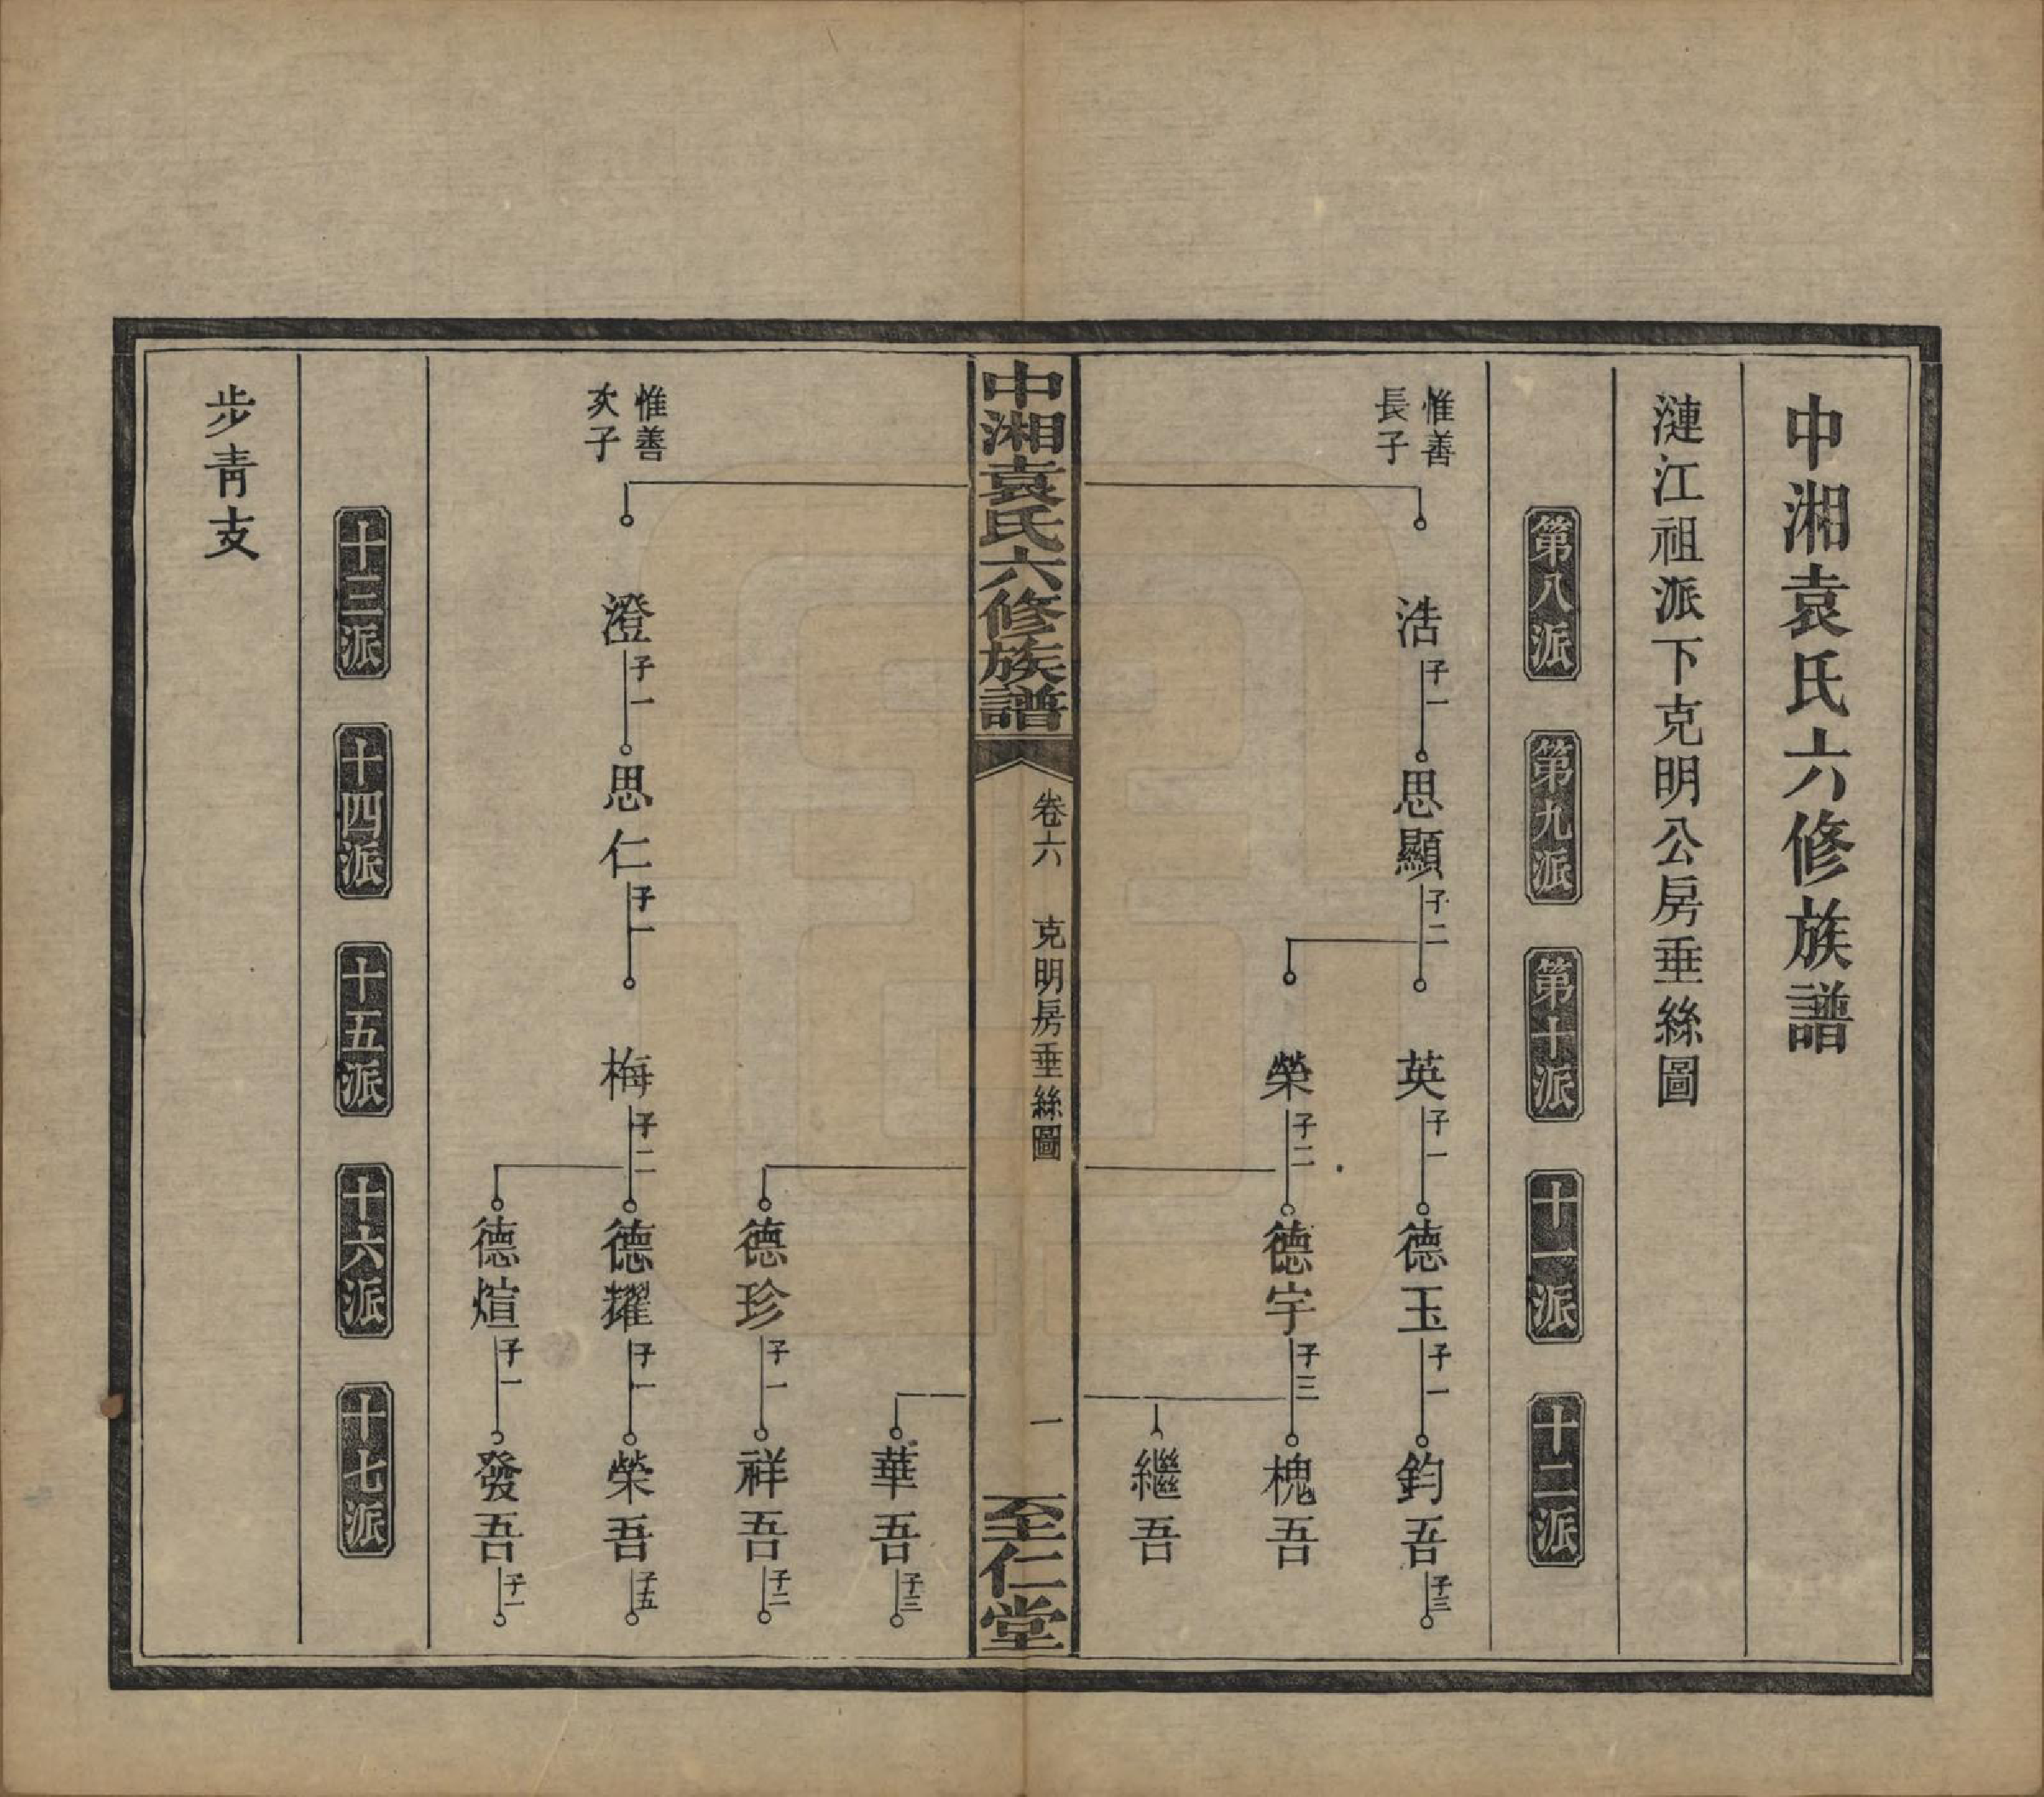 中湘袁氏六修族譜
漣江祖派下克明公房垂絲圖
第八派
第九派
第十派
十一派
十二派
惟善
長子
浩
子一
思顯
子二
英
子一
德玉
子一
鈞吾
子三
榮
子二
德宇
子三
槐吾
繼吾
中湘袁氏六修族譜
卷六
克明房垂絲圖
一
至仁堂
華吾
子三
德珍
子一
祥吾
子二
惟善
次子
澄
子一
思仁
子一
梅
子二
德耀
子一
榮吾
子五
德煊
子一
發吾
子一
十三派
十四派
十五派
十六派
十七派
步青支